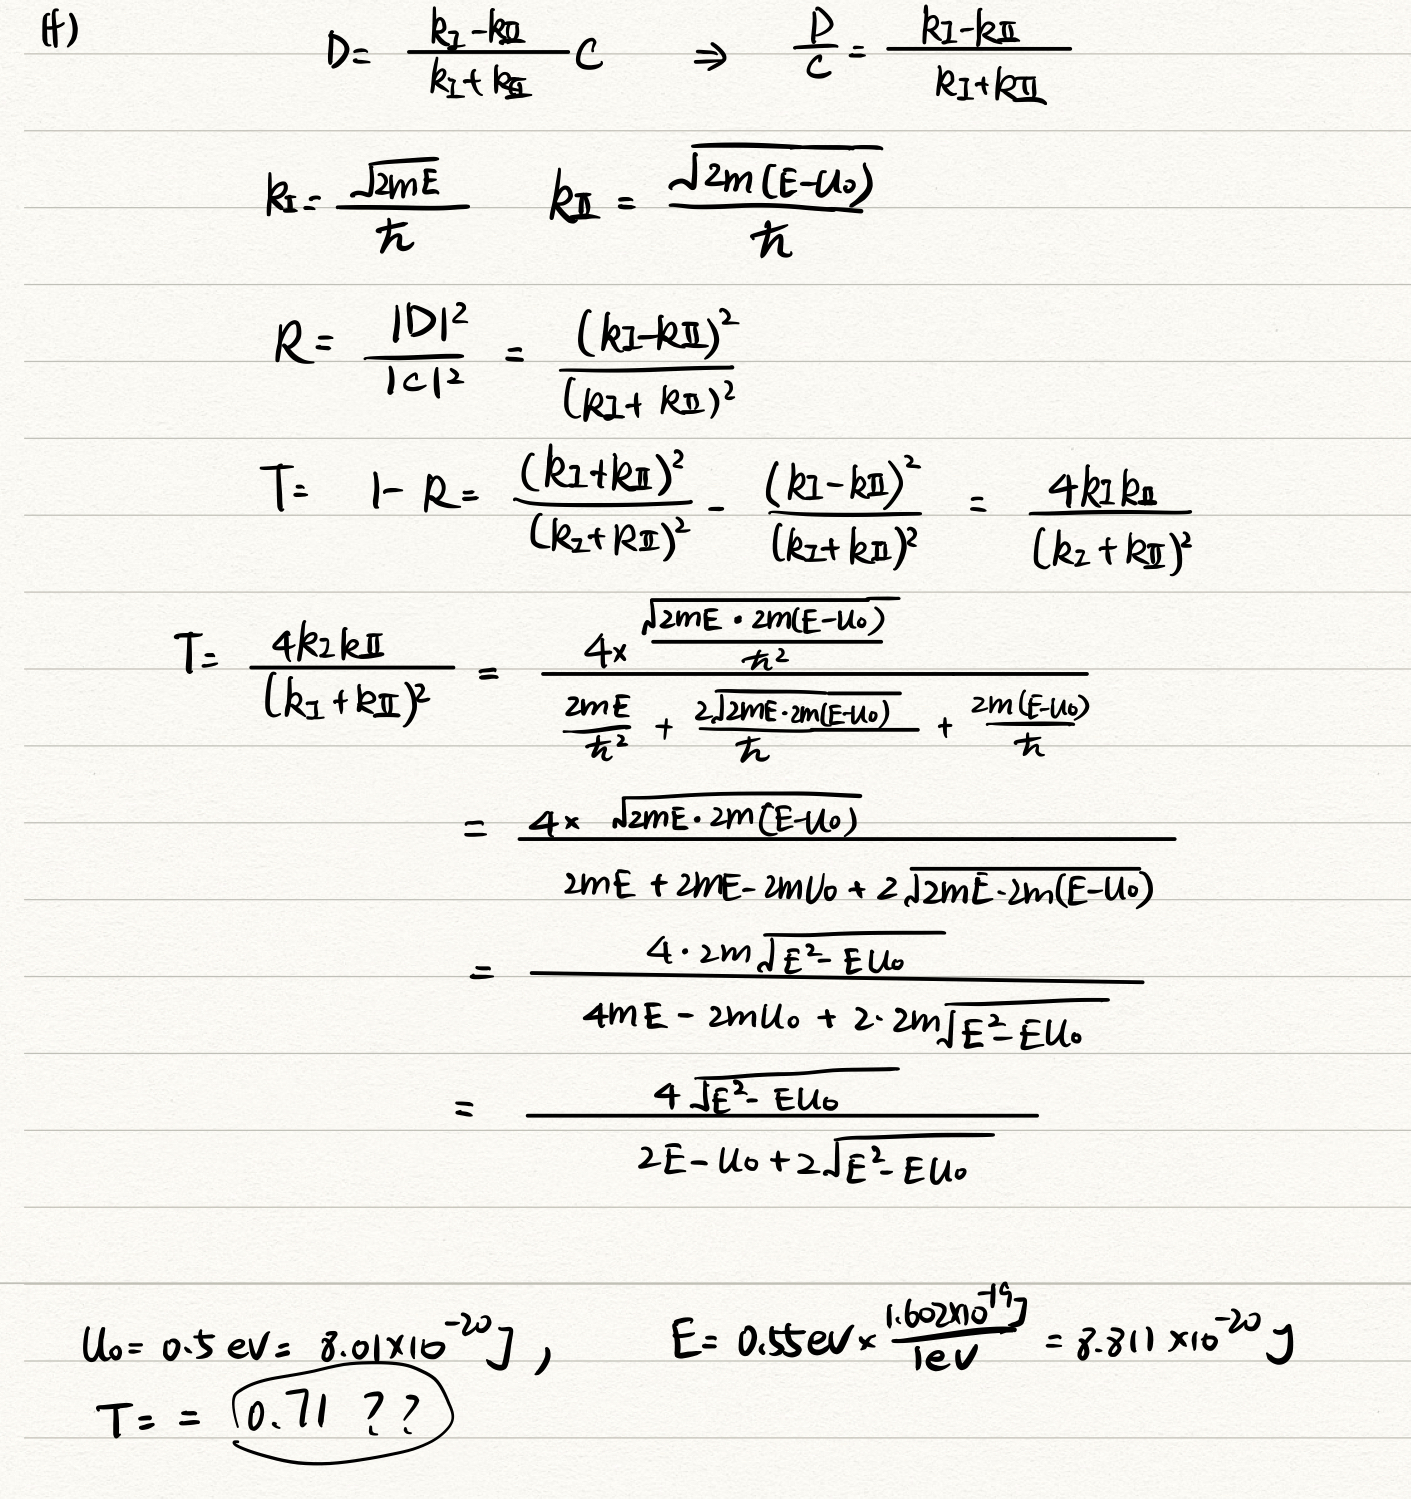 (f) D = (k_I - k_II)/(k_I + k_II) C ⇒ D/C = (k_I - k_II)/(k_I + k_II)
k_I = √(2mE)/ħ k_II = √(2m(E-U₀))/ħ
R = |D|²/|C|² = (k_I - k_II)²/(k_I + k_II)²
T = 1 - R = (k_I + k_II)²/(k_I + k_II)² - (k_I - k_II)²/(k_I + k_II)² = 4k_I k_II/(k_I + k_II)²
T = 4k_I k_II/(k_I + k_II)² = (4 × √(2mE · 2m(E-U₀))/ħ²)/(2mE/ħ² + 2√(2mE · 2m(E-U₀))/ħ + 2m(E-U₀)/ħ)
= 4 × √(2mE · 2m(E-U₀))/(2mE + 2mE - 2mU₀ + 2√(2mE · 2m(E-U₀)))
= 4 · 2m√(E² - EU₀)/(4mE - 2mU₀ + 2 · 2m√(E² - EU₀))
= 4√(E² - EU₀)/(2E - U₀ + 2√(E² - EU₀))
U₀ = 0.5 eV = 8.01×10⁻²⁰ J, E = 0.55 eV × 1.602×10⁻¹⁹ J/1eV = 8.811 ×10⁻²⁰ J
T = = 0.71 ??